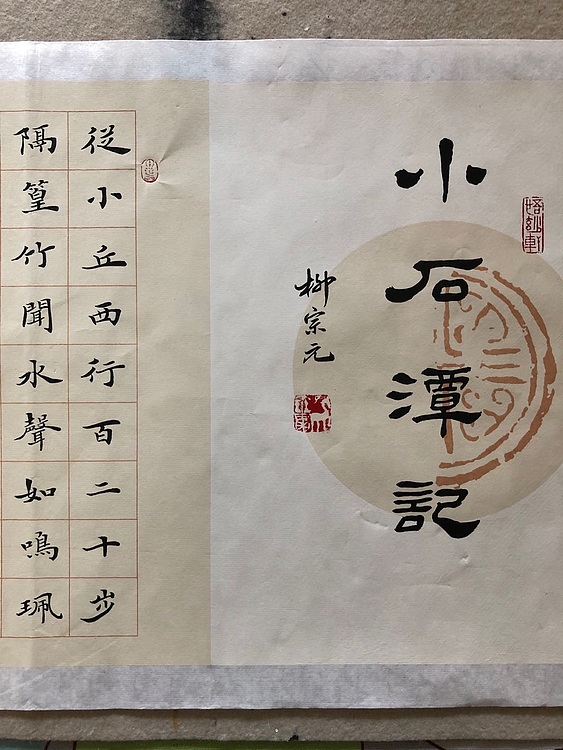 小石潭記
柳宗元
從小丘西行百二十步
隔篁竹聞水聲如鳴珮